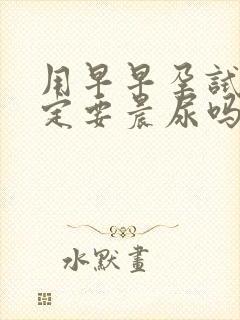 用早早孕试
定要晨尿吗
水默畫